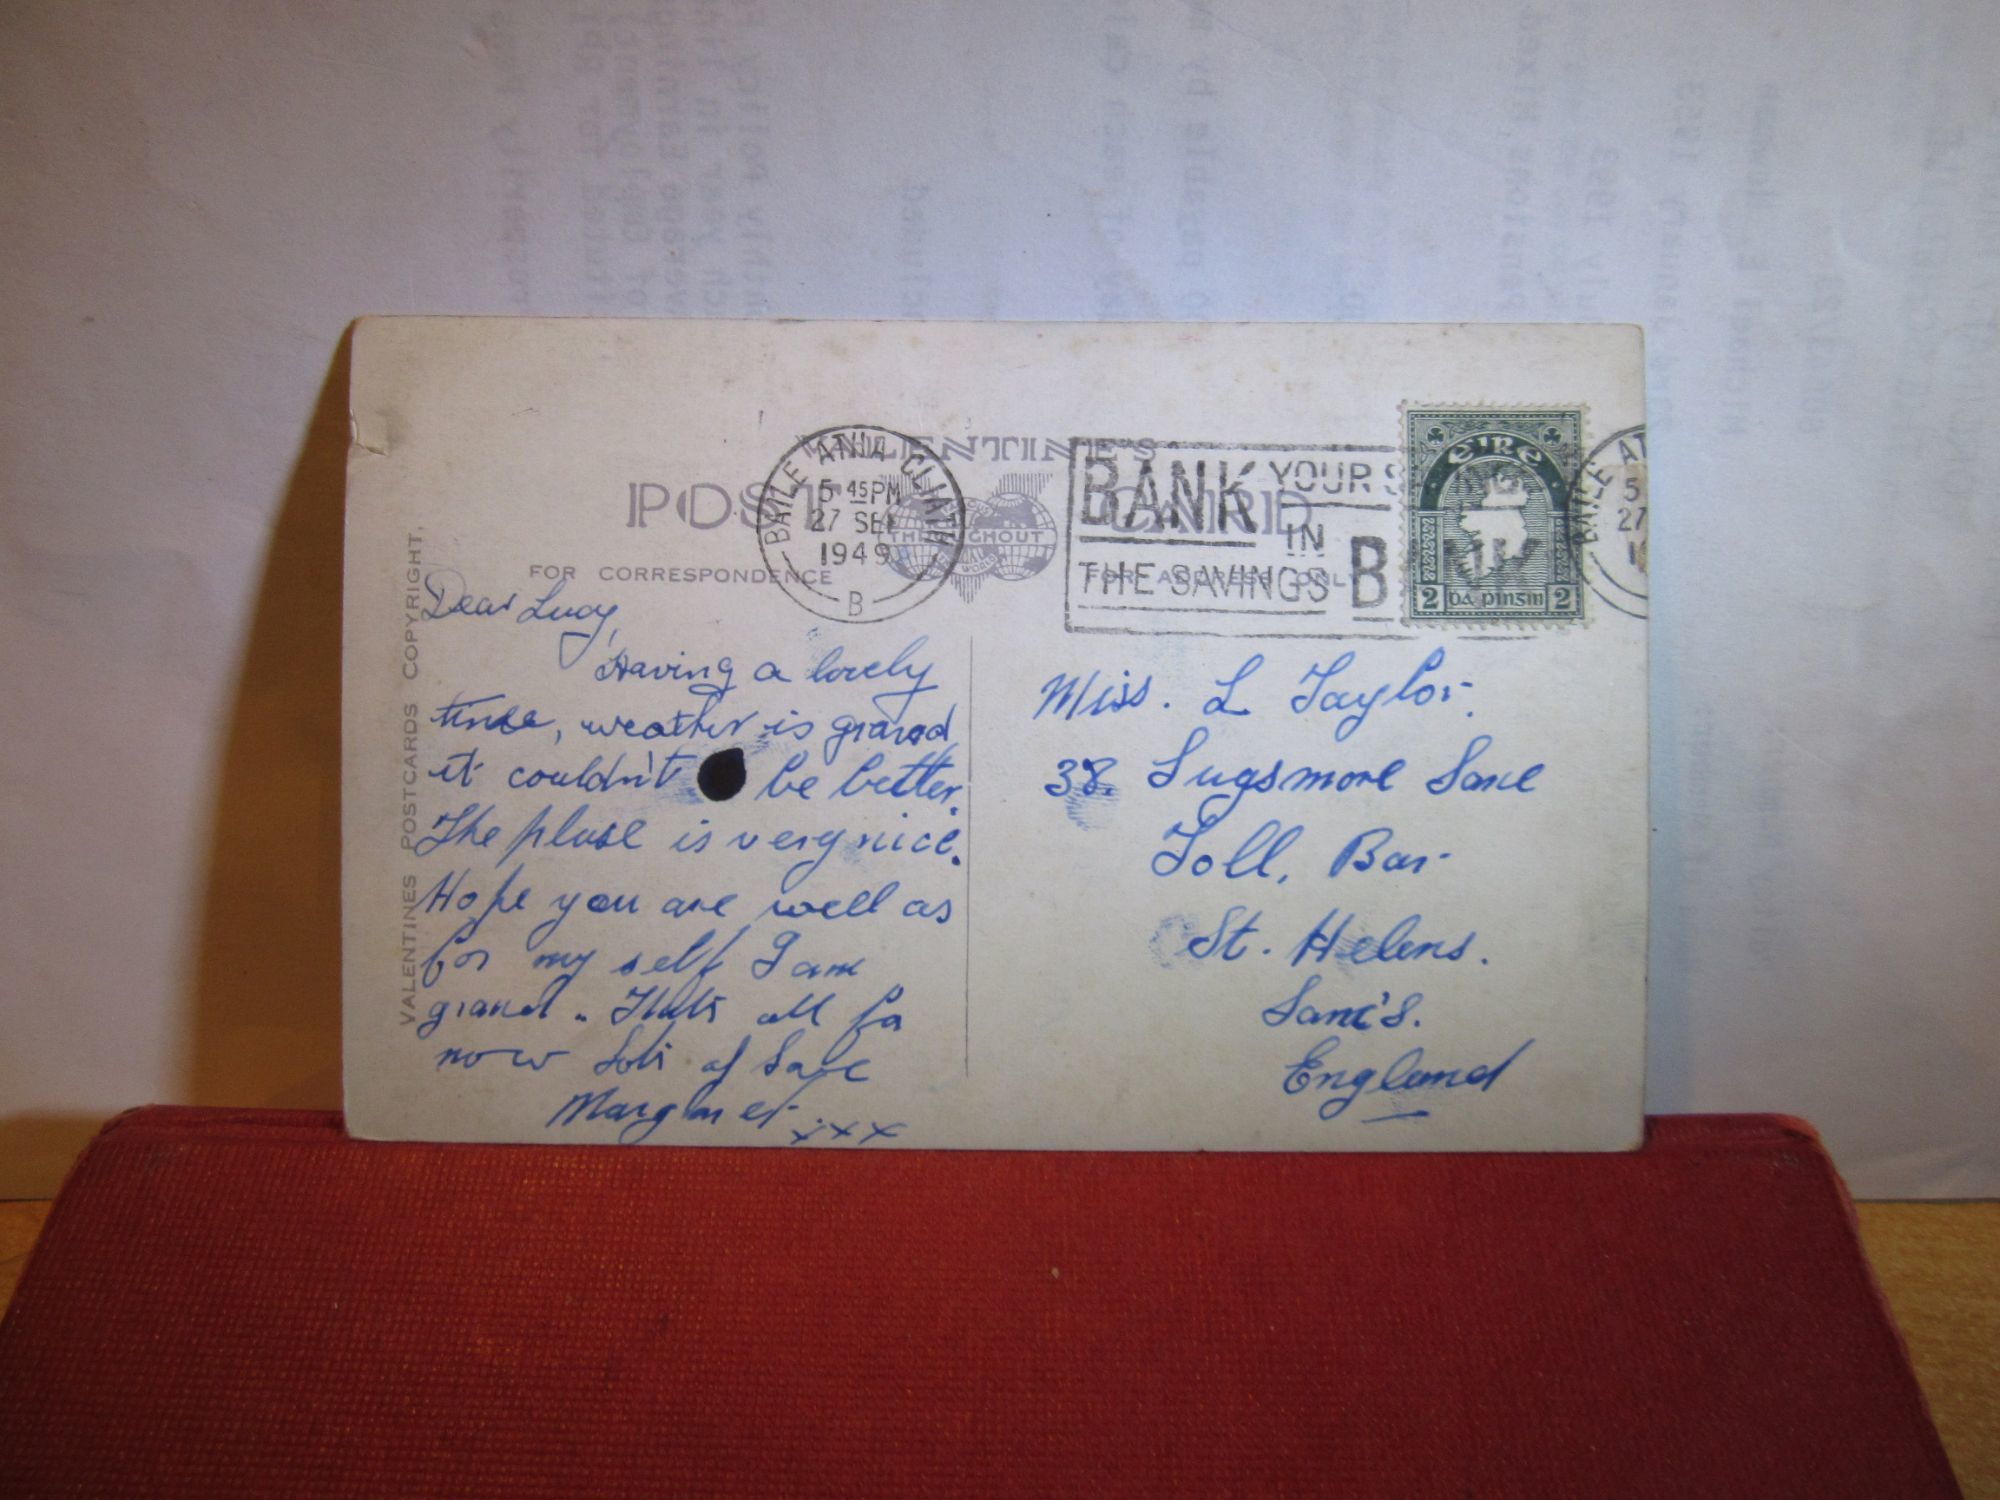 VALENTINE'S
POST CARD
THROUGHOUT
WORLD
FOR CORRESPONDENCE
FOR ADDRESS ONLY
VALENTINES POSTCARDS COPYRIGHT.
BAILE ATHA CLIATH
5 45 PM
27 SE
1949
B
BANK YOUR S
IN
THE SAVINGS B
éire
2 dá pinsin 2
BAILE AT
5
27
1
Dear Lucy,
Having a lovely
time, weather is grand
it couldn't be better.
The plase is very nice.
Hope you are well as
for my self I am
grand. Thats all for
now Lots of Love
Margaret xxx
Miss. L Taylor.
38. Lugsmore Lane
Toll, Bar
St. Helens.
Lanc's.
England